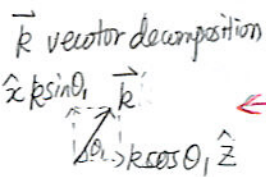 k⃗ vecotor decomposition
x̂ k sinθ₁ k⃗
θ₁ k cosθ₁ ẑ